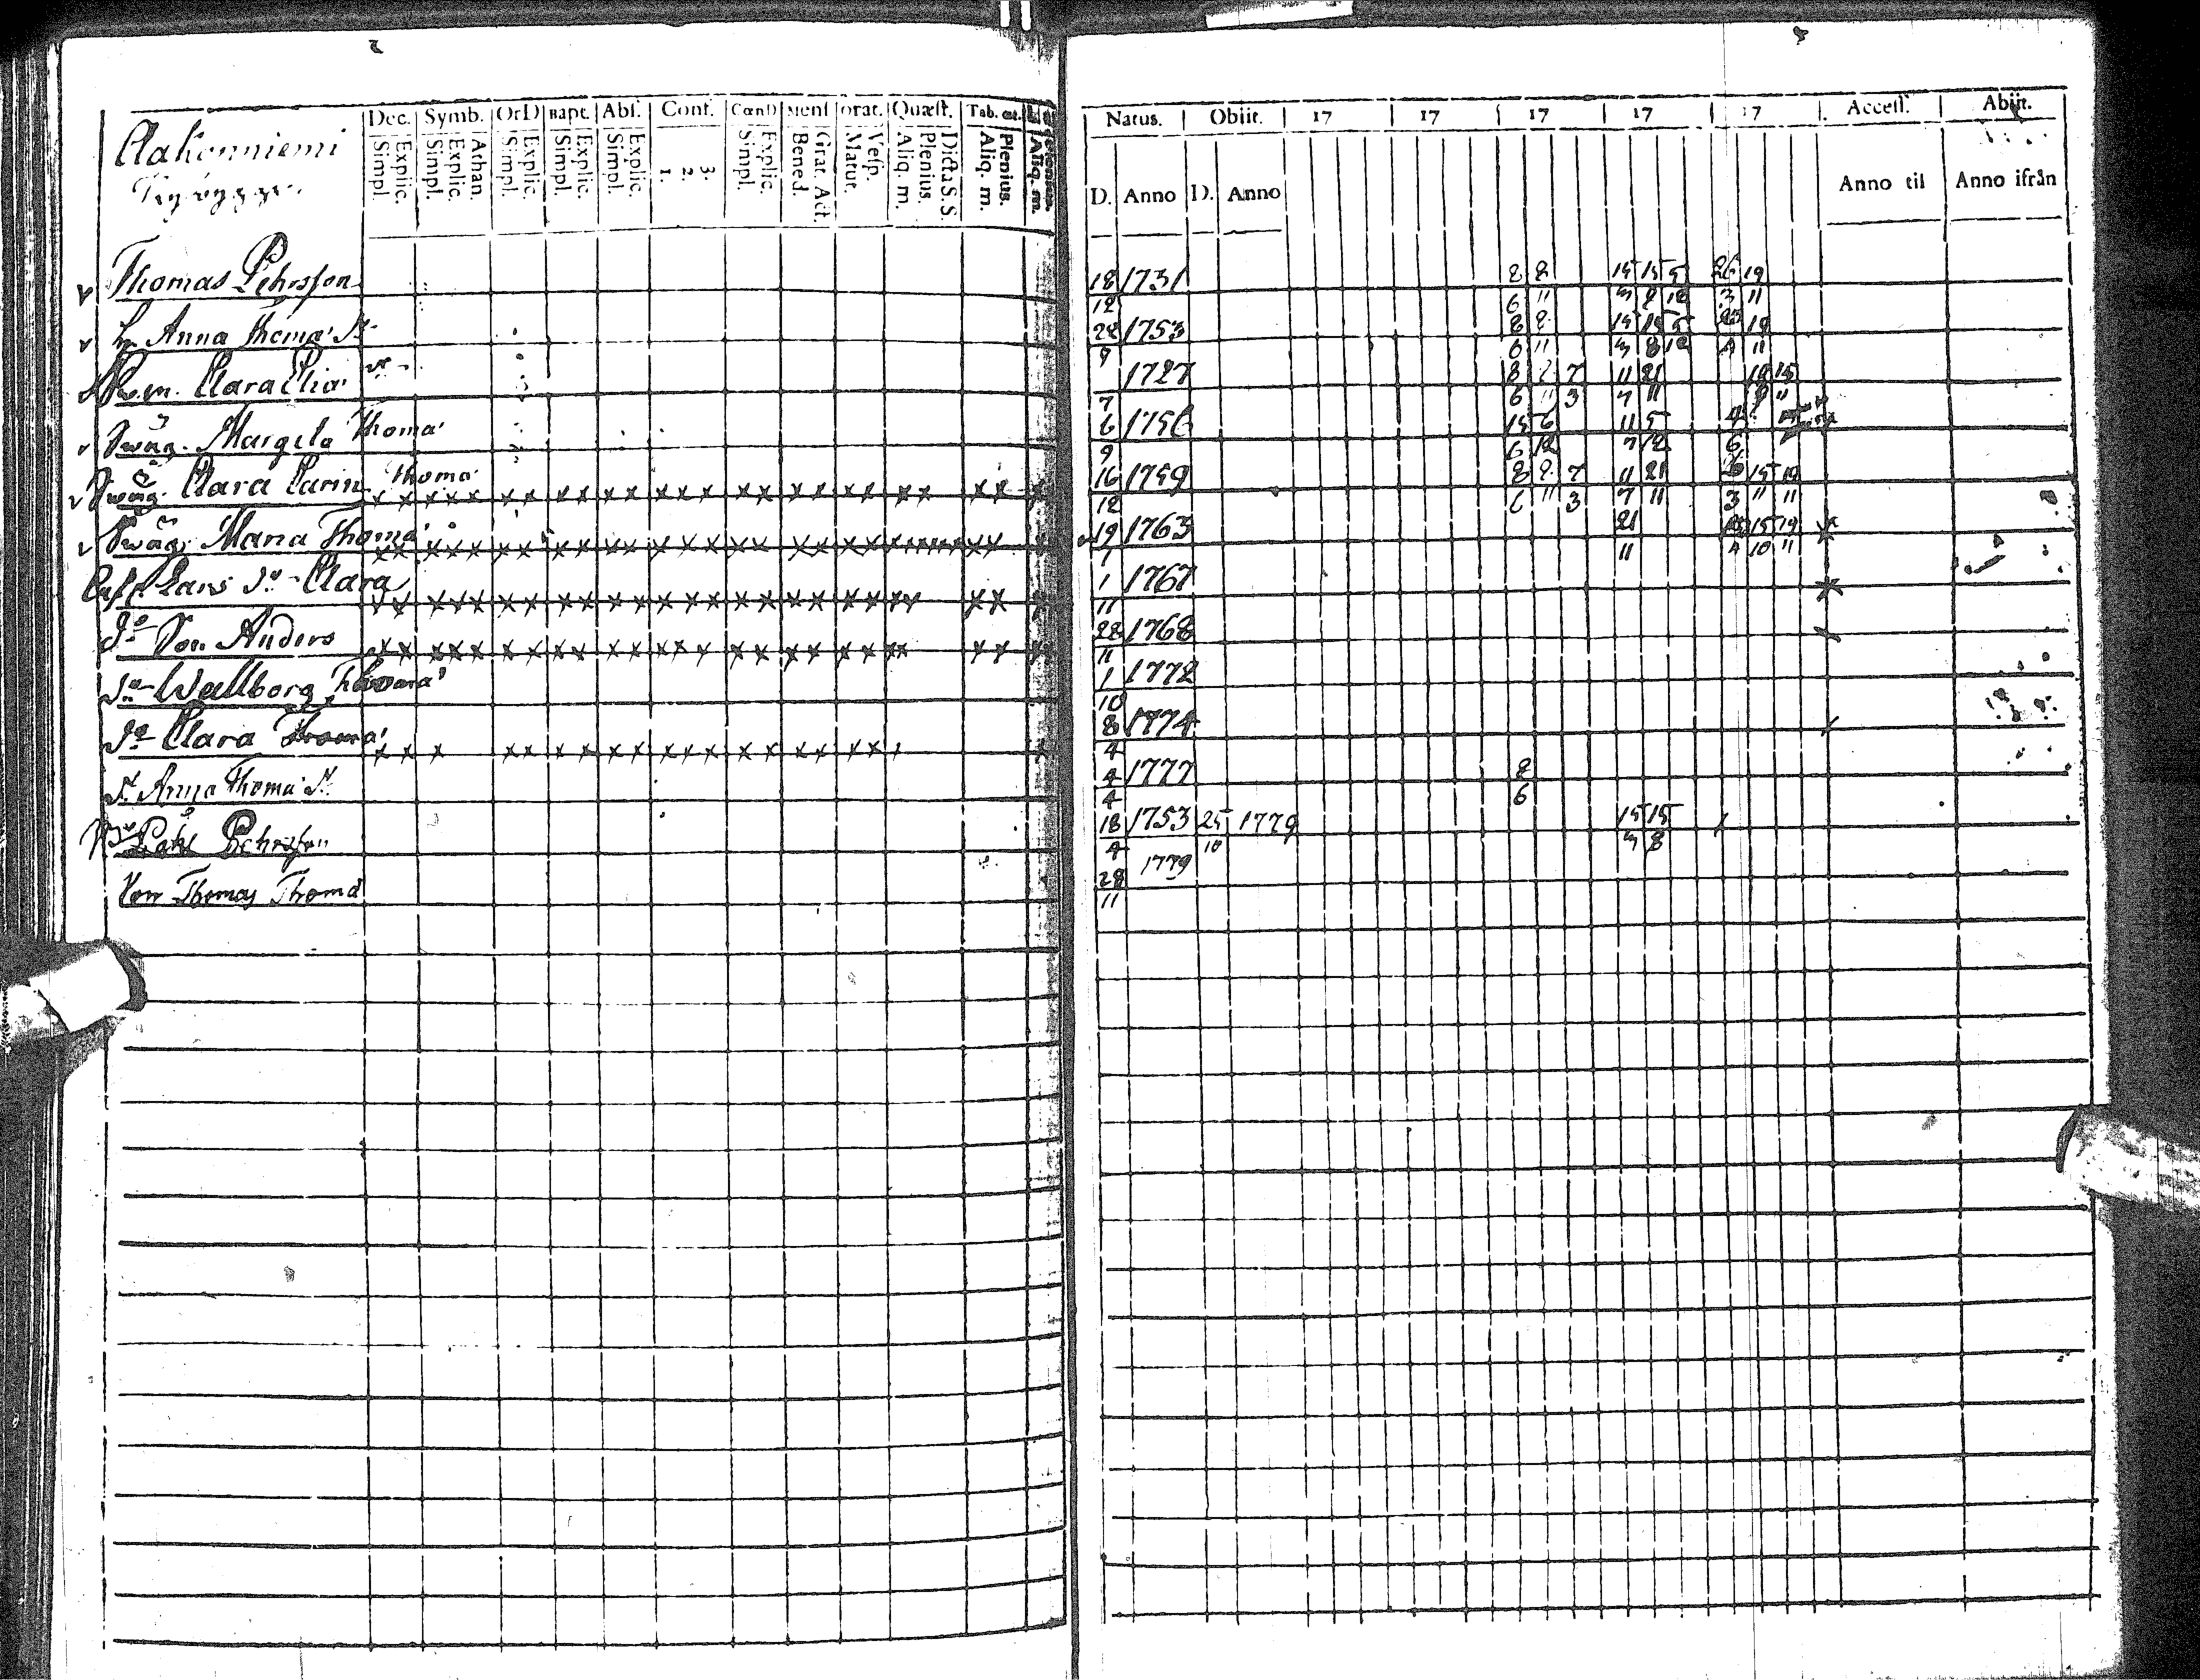 Dec. Symb. OrD Bapt. Abs. Conf. CœnD Mens Orat. Quæst. Tab. œc.
Explic. Simpl. Athan. Explic. Simpl. Explic. Simpl. Explic. Simpl. Explic. Simpl. 3. 2. 1. Explic. Simpl. Grat. Act. Bened. Vesp. Matut. Dicta S. S. Plenius. Aliq. m. Plenius. Aliq. m. Aliq. m.
Natus. Obiit. 17 17 17 17 17 Access. Abiit.
D. Anno D. Anno Anno til Anno ifrån
Aahonniemi
Thomas Pehrsson 18 1731 8 8 15 15 5 26 19
12 6 11 7 8 12 3 11
Anna Thoma 28 1753 8 8 15 15 5 19
9 6 11 7 8 12 4 11
Clara Elia 1727 8 7 11 21 19 15
7 6 11 3 7 11
Swåg. Margeta Thoma 6 1756 15 6 11 5 4
9 6 12 7 12 6
Swåg. Clara Carin Thoma 16 1759 8 8 7 11 21 15 19
12 6 11 3 7 11 3 11 11
Swåg. Maria Thoma 19 1763 21 15 19
1 11 4 10 11
Lars Do Clara 1 1767
11
Do Son Anders 28 1768
11
Do Wallborg Thoma 1 1772
10
Do Clara Thoma 8 1774
4
Anna Thoma 4 1777 8
4 6
Pehrsson 18 1753 25 1779 15 15
4 10 7 8
Thomas Thoma 28 1779
11